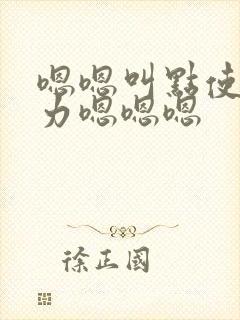 嗯嗯叫點使
力嗯嗯嗯
徐正國